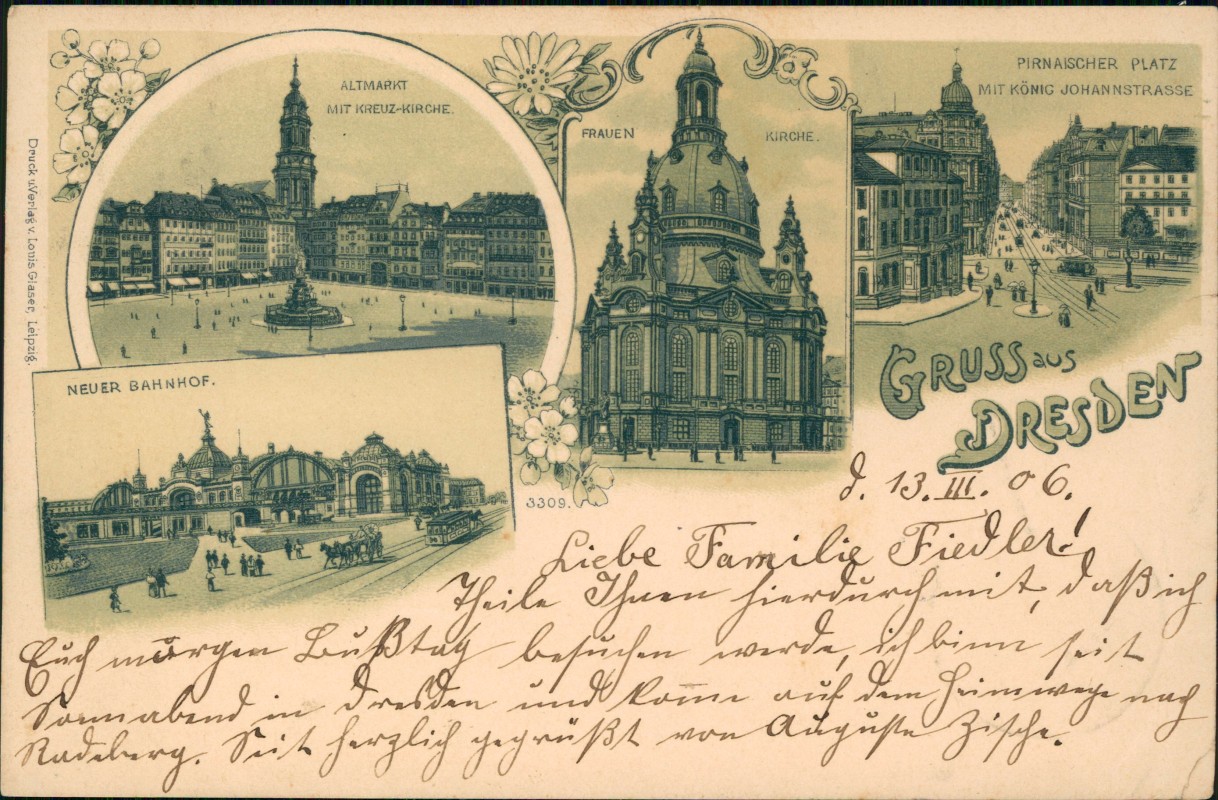 ALTMARKT
MIT KREUZ-KIRCHE.
FRAUEN KIRCHE.
PIRNAISCHER PLATZ
MIT KÖNIG JOHANNSTRASSE
Druck u.Verlag v. Louis Glaser, Leipzig.
NEUER BAHNHOF.
3309.
GRUSS aus
DRESDEN
d. 13. III. 06.
Liebe Familie Fiedler!
Theile Ihnen hierdurch mit, daß ich
Euch morgen Bußtag besuchen werde, ich binn seit
Sonnabend in Dresden und kom̄e auf dem Heimwege nach
Radeberg. Seit herzlich gegrüßt von Auguste Zische.